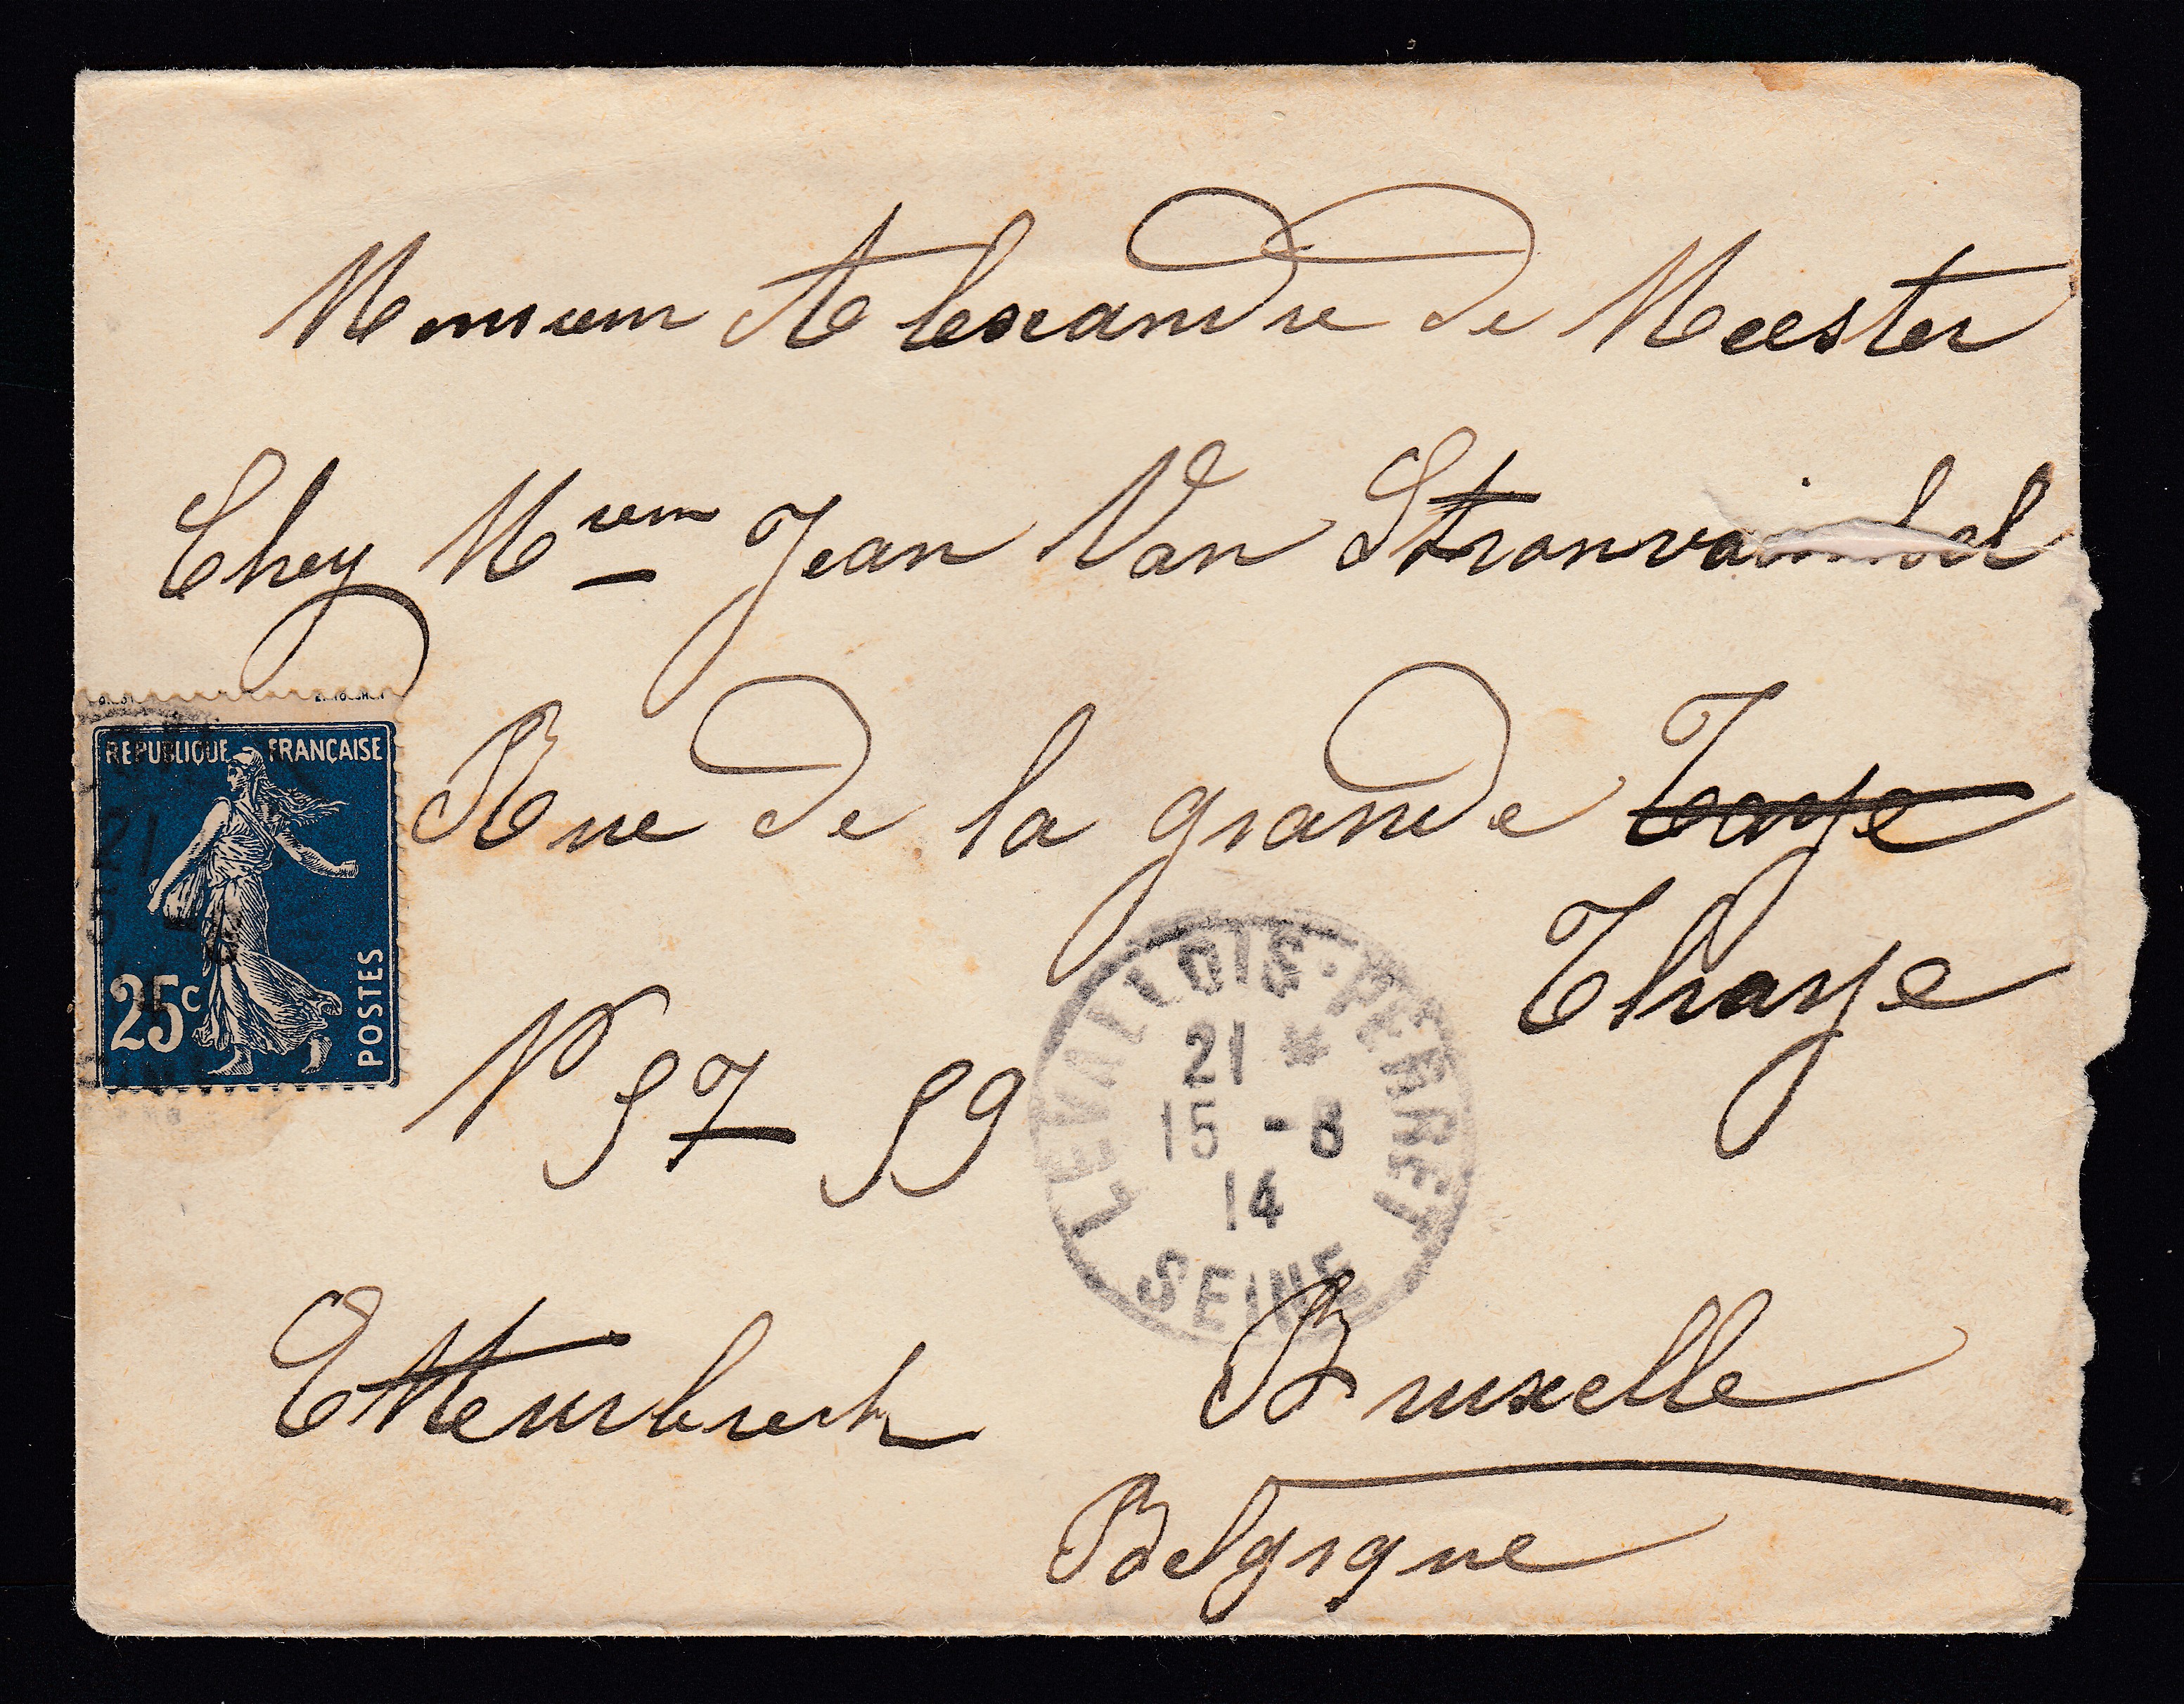 Monsieur Alexandre de Meester
Chez Mr Jean Van
Rue de la grande Haye
Thaye
N° 57 59
Etterubrech Bruxelle
Belgique
REPUBLIQUE FRANÇAISE
25c
POSTES
LEVALLOIS-PERRET
21 *
15 -8
14
SEINE